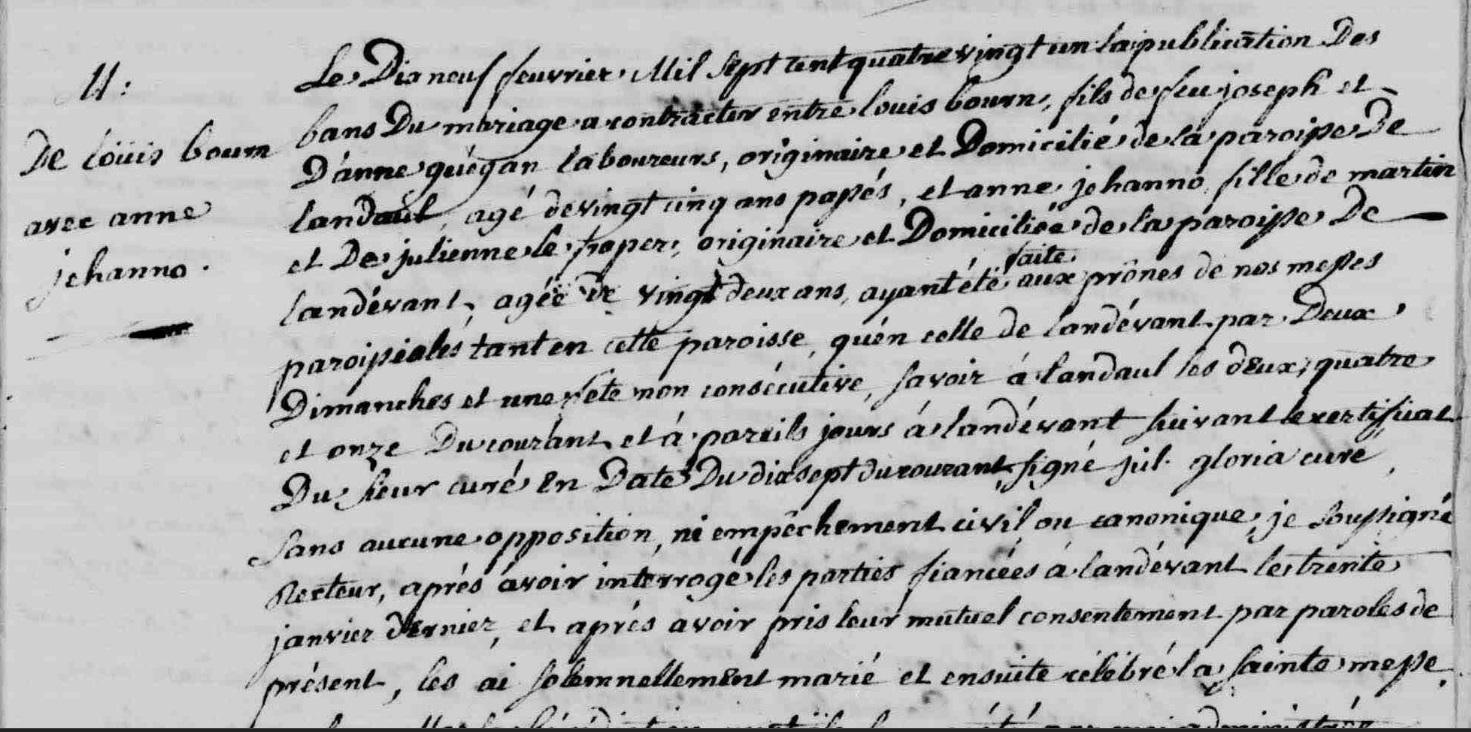 M:
De loüis bourn
avec anne
jehanno.
Le Dix neuf fevrier Mil sept cent quatre vingt un la publication Des
bans Du mariage a contracter entre louis bourn, fils de feu joseph et
D'anne quégan laboureurs, originaire et Domicilié de la paroisse De
landaul, agé de vingt cinq ans passés, et anne jehanno fille de martin
et De julienne le froper, originaire et Domiciliée de la paroisse De
landévant, agée De vingt deux ans, ayant été faite aux prônes de nos messes
paroissiales tant en cette paroisse, qu'en celle de landévant par Deux
Dimanches et une fete non consécutive, savoir á landaul les deux, quatre
et onze Du courant et á pareils jours á landévant suivant le certificat
Du sieur curé En Date Du dix sept du courant, signé jul. gloria curé,
sans aucune opposition, ni empêchement civil ou canonique, je soussigné
Recteur, aprés avoir interrogé les parties fiancées á landévant le trente
janvier dernier, et aprés avoir pris leur mutuel consentement par paroles de
présent, les ai solemnellement marié et ensuite célébré la sainte messe